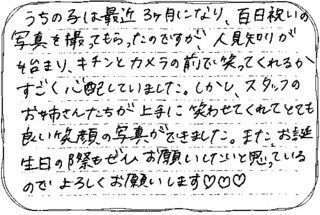 うちの子は最近3ヶ月になり、百日祝いの
写真を撮ってもらったのですが、人見知りが
始まり、キチンとカメラの前で笑ってくれるか
すごく心配していました。しかし、スタッフの
お姉さんたちが上手に笑わせてくれてとても
良い笑顔の写真ができました。また、お誕
生日の際もぜひお願いしたいと思っている
のでよろしくお願いします♡♡♡